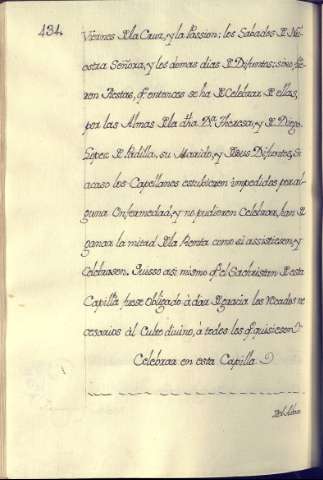 434.
Viernes de la Cruz, y la Passion; los Sabados de Nu-
estra Señora, y los demas dias de Difuntos; sino fue-
ren Fiestas, q.e entonces se ha de Celebrar de ellas,
por las Almas de la dha D.a Theresa, y de Diego
Lopez de Padilla, su Marido, y de sus Difuntos, Si
acaso los Capellanes estubieren impedidos por al-
guna Enfermedad, y no pudieren Celebrar, han de
ganar la mitad de la Renta como si assistiesen, y
Celebrasen. Quisso asi mismo q.e el Sachristan de esta
Capilla fuese obligado à dar de gracia los recados ne-
cesarios al Culto divino, a todos los q.e quisiesen
Celebrar en esta Capilla.